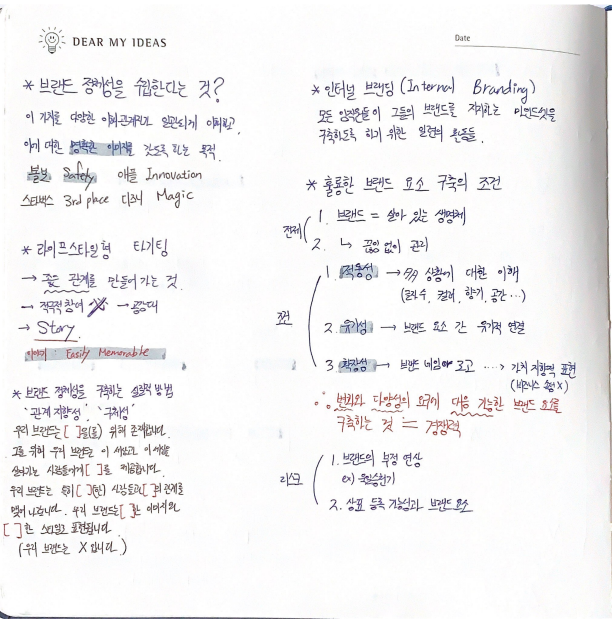 DEAR MY IDEAS
Date
* 브랜드 정체성을 수립한다는 것?
이 가치를 다양한 이해관계자가 일관되게 이해하고,
이에 대한 명확한 이미지를 갖도록 하는 목적.
볼보 Safety 애플 Innovation
스타벅스 3rd place 디즈니 Magic
* 라이프스타일형 타기팅
→ 좋은 관계를 만들어 가는 것.
→ 적극적 참여 → 공감대
→ Story.
이야기 : Easily Memorable
* 브랜드 정체성을 구축하는 실질적 방법
'관계 지향성', '구체성'
우리 브랜드는 [ ]을(를) 위해 존재합니다.
그를 위해 우리 브랜드는 이 세상과 이 세상을
살아가는 사람들에게 [ ]를 제공합니다.
우리 브랜드는 [ ](한) 사람들과 [ ]의 관계를
맺어 나갑니다. 우리 브랜드는 [ ]한 이미지와
[ ]한 스타일로 표현됩니다.
(우리 브랜드는 X 입니다.)
* 인터널 브랜딩 (Internal Branding)
모든 임직원들이 그들의 브랜드를 지지하는 마인드셋을
구축하도록 하기 위한 일련의 활동들.
* 훌륭한 브랜드 요소 구축의 조건
전제
1. 브랜드 = 살아 있는 생명체
2. ↳ 끊임 없이 관리
조건
1. 적응성 → 상황에 대한 이해
(로고, 컬러, 향기, 공간 …)
2. 유기성 → 브랜드 요소 간 유기적 연결
3. 확장성 → 브랜드 네임이나 로고 ‥‥→ 가치 지향적 표현
(비즈니스 속성 X)
∴ 변화와 다양성의 요구에 대응 가능한 브랜드 요소를
구축하는 것 = 경쟁력
리스크
1. 브랜드의 부정 연상
ex)
2. 상표 등록 가능성과 브랜드 요소